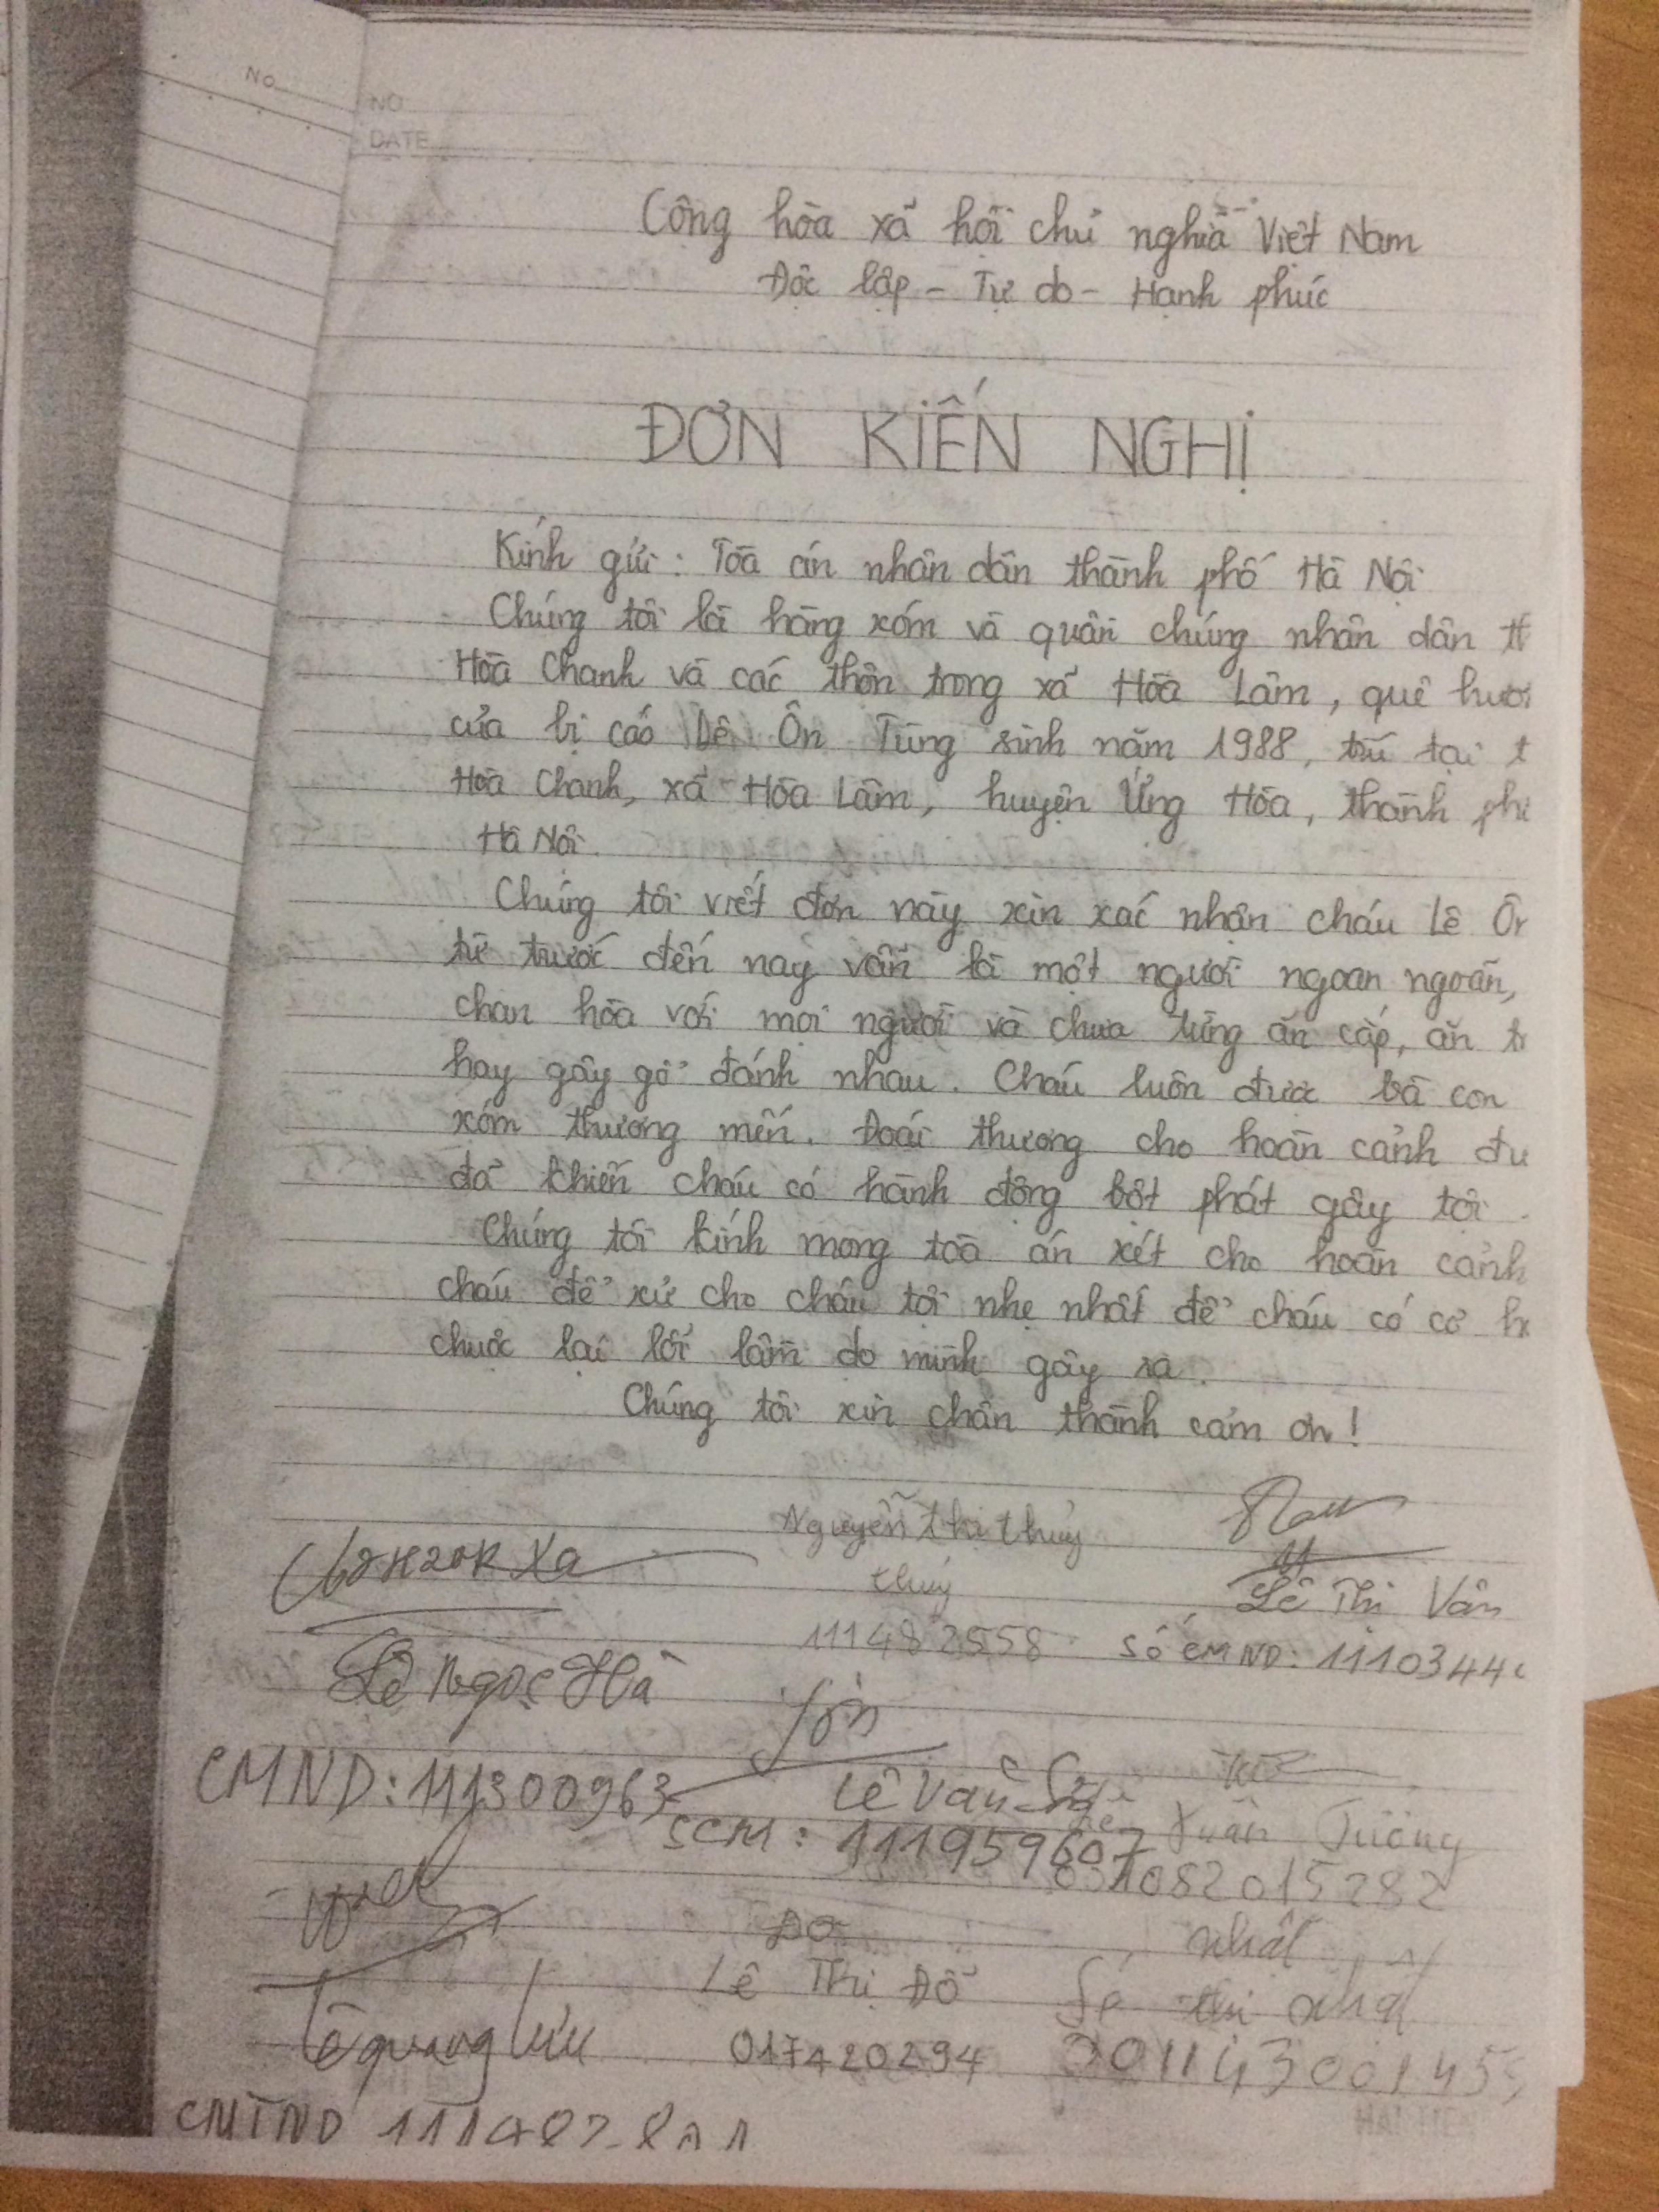 No
NO
DATE
Công hòa xã hội chủ nghĩa Việt Nam
Độc lập - Tự do - Hạnh phúc
ĐƠN KIẾN NGHỊ
Kính gửi: Tòa án nhân dân thành phố Hà Nội
Chúng tôi là hàng xóm và quần chúng nhân dân th
Hòa Chanh và các thôn trong xã Hòa Lâm, quê hươ
của bị cáo Lê Ôn Tùng sinh năm 1988, trú tại t
Hòa Chanh, xã Hòa Lâm, huyện Ứng Hòa, thành phố
Hà Nội.
Chúng tôi viết đơn này xin xác nhận cháu Lê Ôn
từ trước đến nay vẫn là một người ngoan ngoãn,
chan hòa với mọi người và chưa từng ăn cắp, ăn tr
hay gây gổ đánh nhau. Cháu luôn được bà con
xóm thương mến. Đoái thương cho hoàn cảnh đư
đã khiến cháu có hành động bột phát gây tội.
Chúng tôi kính mong toà án xét cho hoàn cảnh
cháu để xử cho cháu tội nhẹ nhất để cháu có cơ h
chuộc lại lỗi lầm do mình gây ra.
Chúng tôi xin chân thành cảm ơn!
Nguyễn thị thúy
thúy
111482558
Lê Thị Vân
Số CMND: 1110344
Lê Ngọc Hà
CMND: 111300963
Lê Văn
SCM: 111959607
Xuân Tường
082015282
Lê quang Lưu
CMTND
Đỗ
Lê Thị Đỗ
017420294
nhật
thị nhật
001143001455
HAI TIEN